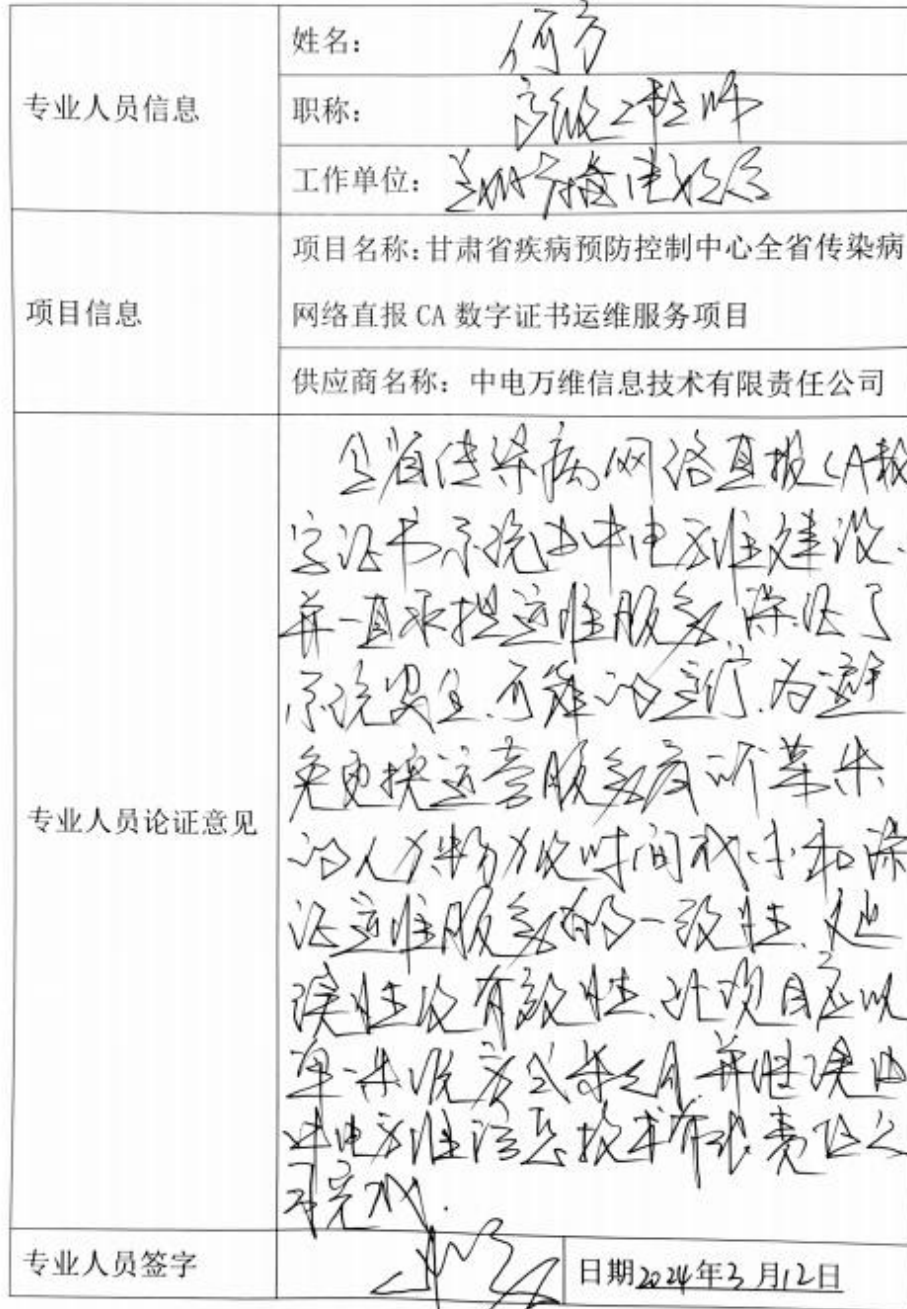 专业人员信息
姓名: 何方
职称: 高级工程师
工作单位: 兰州
项目信息
项目名称:甘肃省疾病预防控制中心全省传染病
网络直报 CA 数字证书运维服务项目
供应商名称: 中电万维信息技术有限责任公司
专业人员论证意见
全省传染病网络直报CA数
字证书系统由中电万维建设、
并一直承担运维服务,保证了
系统安全、可靠的运行,为避
免更换运营服务商所带来
的人力物力及时间成本和保
证运维服务的一致性、连
续性及有效性,此项目应以
单一来源方式并继续由
中电万维信息技术有限责任公
司完成.
专业人员签字
日期2024年3月12日